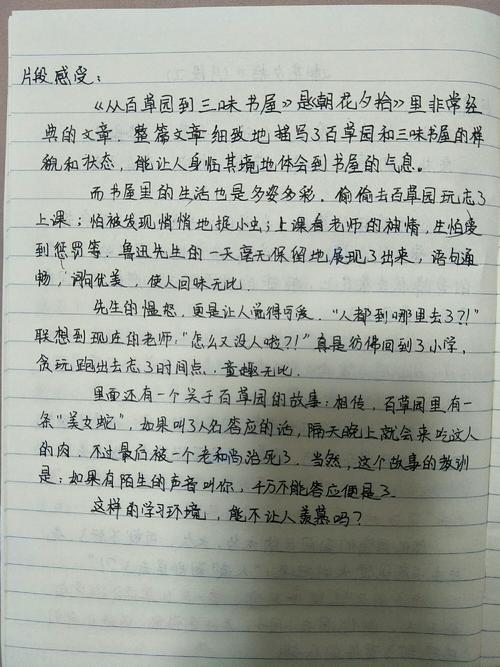 片段感受：
《从百草园到三味书屋》是《朝花夕拾》里非常经
典的文章．整篇文章细致地描写了百草园和三味书屋的样
貌和状态，能让人身临其境地体会到书屋的气息。
而书屋里的生活也是多姿多彩．偷偷去百草园玩忘了
上课；怕被发现悄悄地捉小虫；上课看老师的神情，生怕受
到惩罚等．鲁迅先生的一天毫无保留地展现了出来，语句通
畅，词句优美，使人回味无比．
先生的愠怒，更是让人觉得可爱．"人都到哪里去了？！"
联想到现在的老师："怎么又没人啦？！"真是彷佛回到了小学，
贪玩跑出去忘了时间点．童趣无比．
里面还有一个关于百草园的故事：相传，百草园里有一
条"美女蛇"，如果叫了人名答应的话，隔天晚上就会来吃这人
的肉．不过最后被一个老和尚治死了．当然，这个故事的教训
是：如果有陌生的声音叫你，千万不能答应便是了．
这样的学习环境，能不让人羡慕吗？